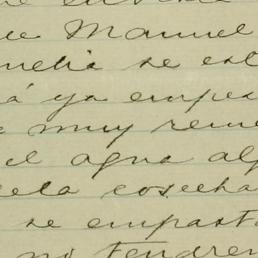 ue Manuel
melia se est
á ya empes
muy reme
el agua alg
cela cosecha
se empasta
no tendren